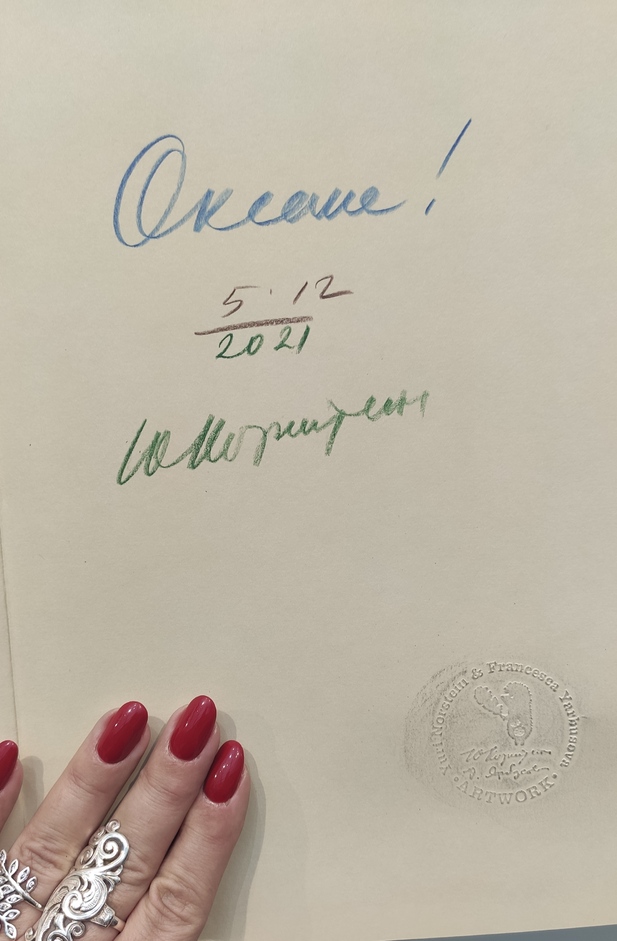 Оксане!
5·12
2021
ЮНорштейн
Yuri Norstein & Francesca Yarbusova
ЮНорштейн
• ARTWORK •